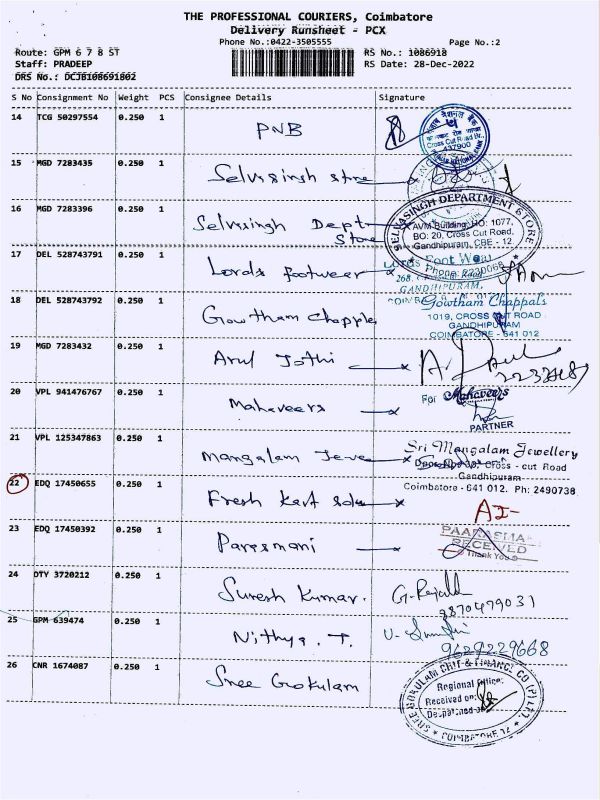 THE PROFESSIONAL COURIERS, Coimbatore
Delivery Runsheet - PCX
Phone No.:0422-3505555 Page No.:2
Route: GPM 6 7 8 ST RS No.: 1086918
Staff: PRADEEP RS Date: 28-Dec-2022
DRS No.: DCJB108691802
S No Consignment No Weight PCS Consignee Details Signature
14 TCG 50297554 0.250 1 PNB
Cross Cut Road Br.
437900
15 MGD 7283435 0.250 1 Selvisingh store
16 MGD 7283396 0.250 1 Selvsingh Dept
Store
SELVASINGH DEPARTMENT STORE
AVM Building, NO: 1077,
BO: 20, Cross Cut Road,
Gandhipuram, CBE - 12.
Phone: 2230068
17 DEL 528743791 0.250 1 Lords footwear
Foot Wear
GANDHIPURAM,
18 DEL 528743792 0.250 1 Gowtham Chapples
Gowtham Chappals
1019, CROSS CUT ROAD
GANDHIPURAM
COIMBATORE - 641 012
19 MGD 7283432 0.250 1 Arul Jothi
20 VPL 941476767 0.250 1 Mahaveers
For Mahaveers
PARTNER
21 VPL 125347863 0.250 1 Mangalam Jewe
Sri Mangalam Jewellery
Cross - cut Road
Gandhipuram
Coimbatore - 641 012. Ph: 2490738
22 EDQ 17450655 0.250 1 Fresh Kart
AI-
23 EDQ 17450392 0.250 1 Paresmani
RECEIVED
Thank You
24 DTY 3720212 0.250 1 Suresh Kumar.
9870479031
25 GPM 639474 0.250 1 Nithya . T.
9629229668
26 CNR 1674087 0.250 1 Sree Gokulam
SREE GOKULAM CHIT & FINANCE CO (P) LTD
Regional Office:
Received on:
COIMBATORE-12